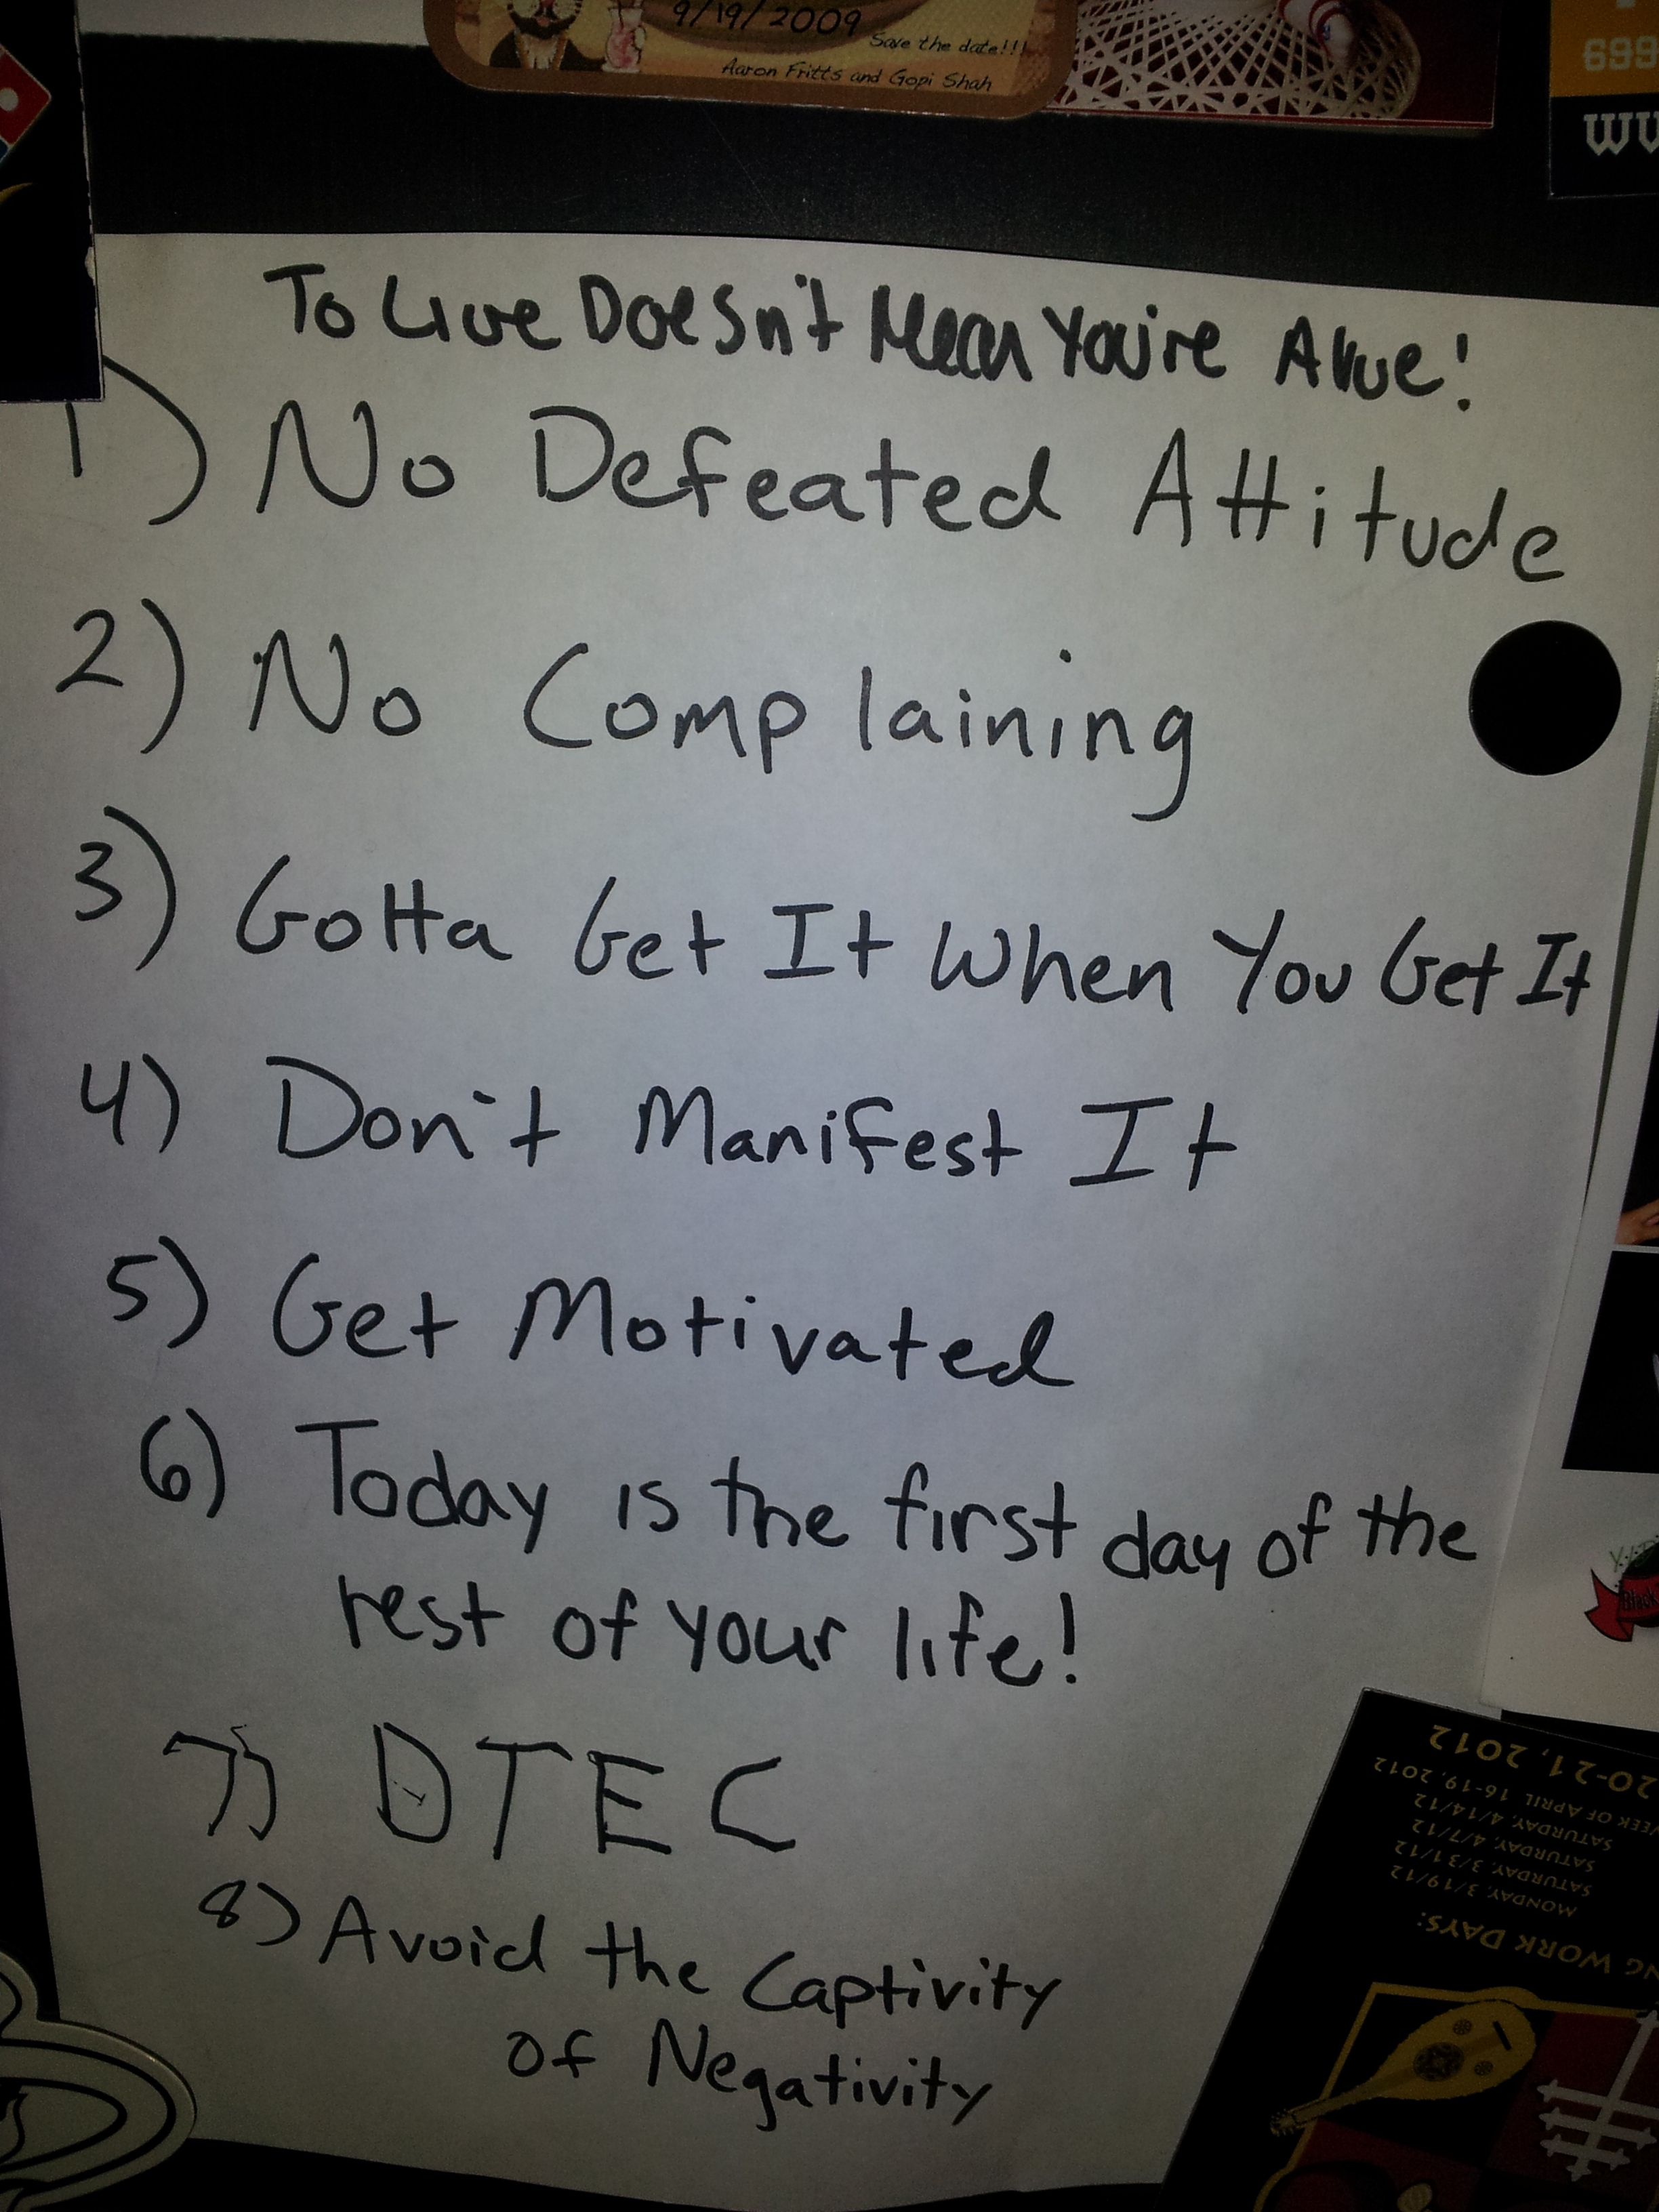 9/19/2009
Save the date!!!
Aaron Fritts and Gopi Shah
699
To Live Doesn't Mean You're Alive!
1) No Defeated Attitude
2) No Complaining
3) Gotta Get It When You Get It
4) Don't Manifest It
5) Get Motivated
6) Today is the first day of the
rest of your life!
7) DTEC
8) Avoid the Captivity
of Negativity
Black
NG WORK DAYS:
MONDAY, 3/19/12
SATURDAY, 3/31/12
SATURDAY, 4/7/12
SATURDAY, 4/14/12
EEK OF APRIL 16-19, 2012
20-21, 2012